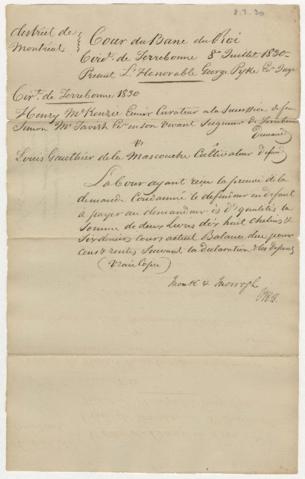 8.7.30
District de
Montréal
Cour du Banc du Roi
Circt. de Terrebonne 8e Juillet 1830
Présent L'Honorable George Pyke Ecr Juge
Cirt. de Terrebonne 1830
Henry McKenzie Ecuier Curateur a la Succession de feu
Simon McTavish Ecr en son vivant Seigneur de Terrebonne
Demandr
Vs
Louis Gauthier de la Mascouche Cultivateur defdr
La Cour ayant reçu la preuve de la
demande Condamne le défendeur en défaut
à payer au demandeur es dt qualité la
Somme de deux Livres dix huit chelins &
Six deniers cours actuel Balance due pour
Cens & rentes Suivant la déclaration & les depens
(Vraie Copie)
Monk & Morrogh
P.B.R.